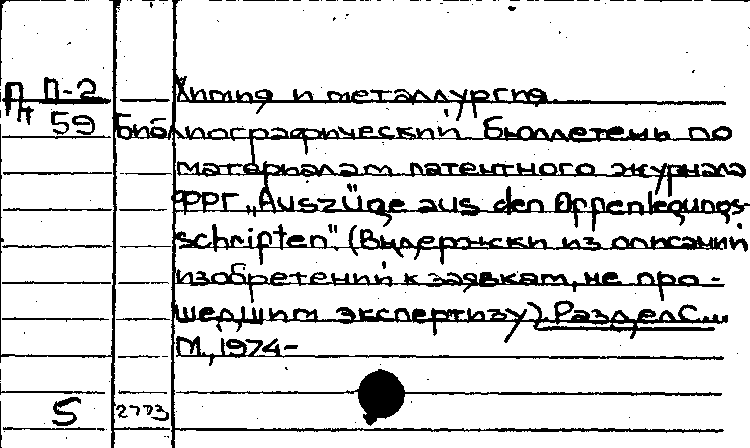 П П-2
Пт 59
Химия и металлургия.
Библиографический бюллетень по
материалам патентного журнала
ФРГ „Auszüge aus den Offenlegungs-
schriften". (Выдержки из описаний
изобретений к заявкам, не про-
шедшим экспертизу). Раздел С...
М., 1974-
5 2773